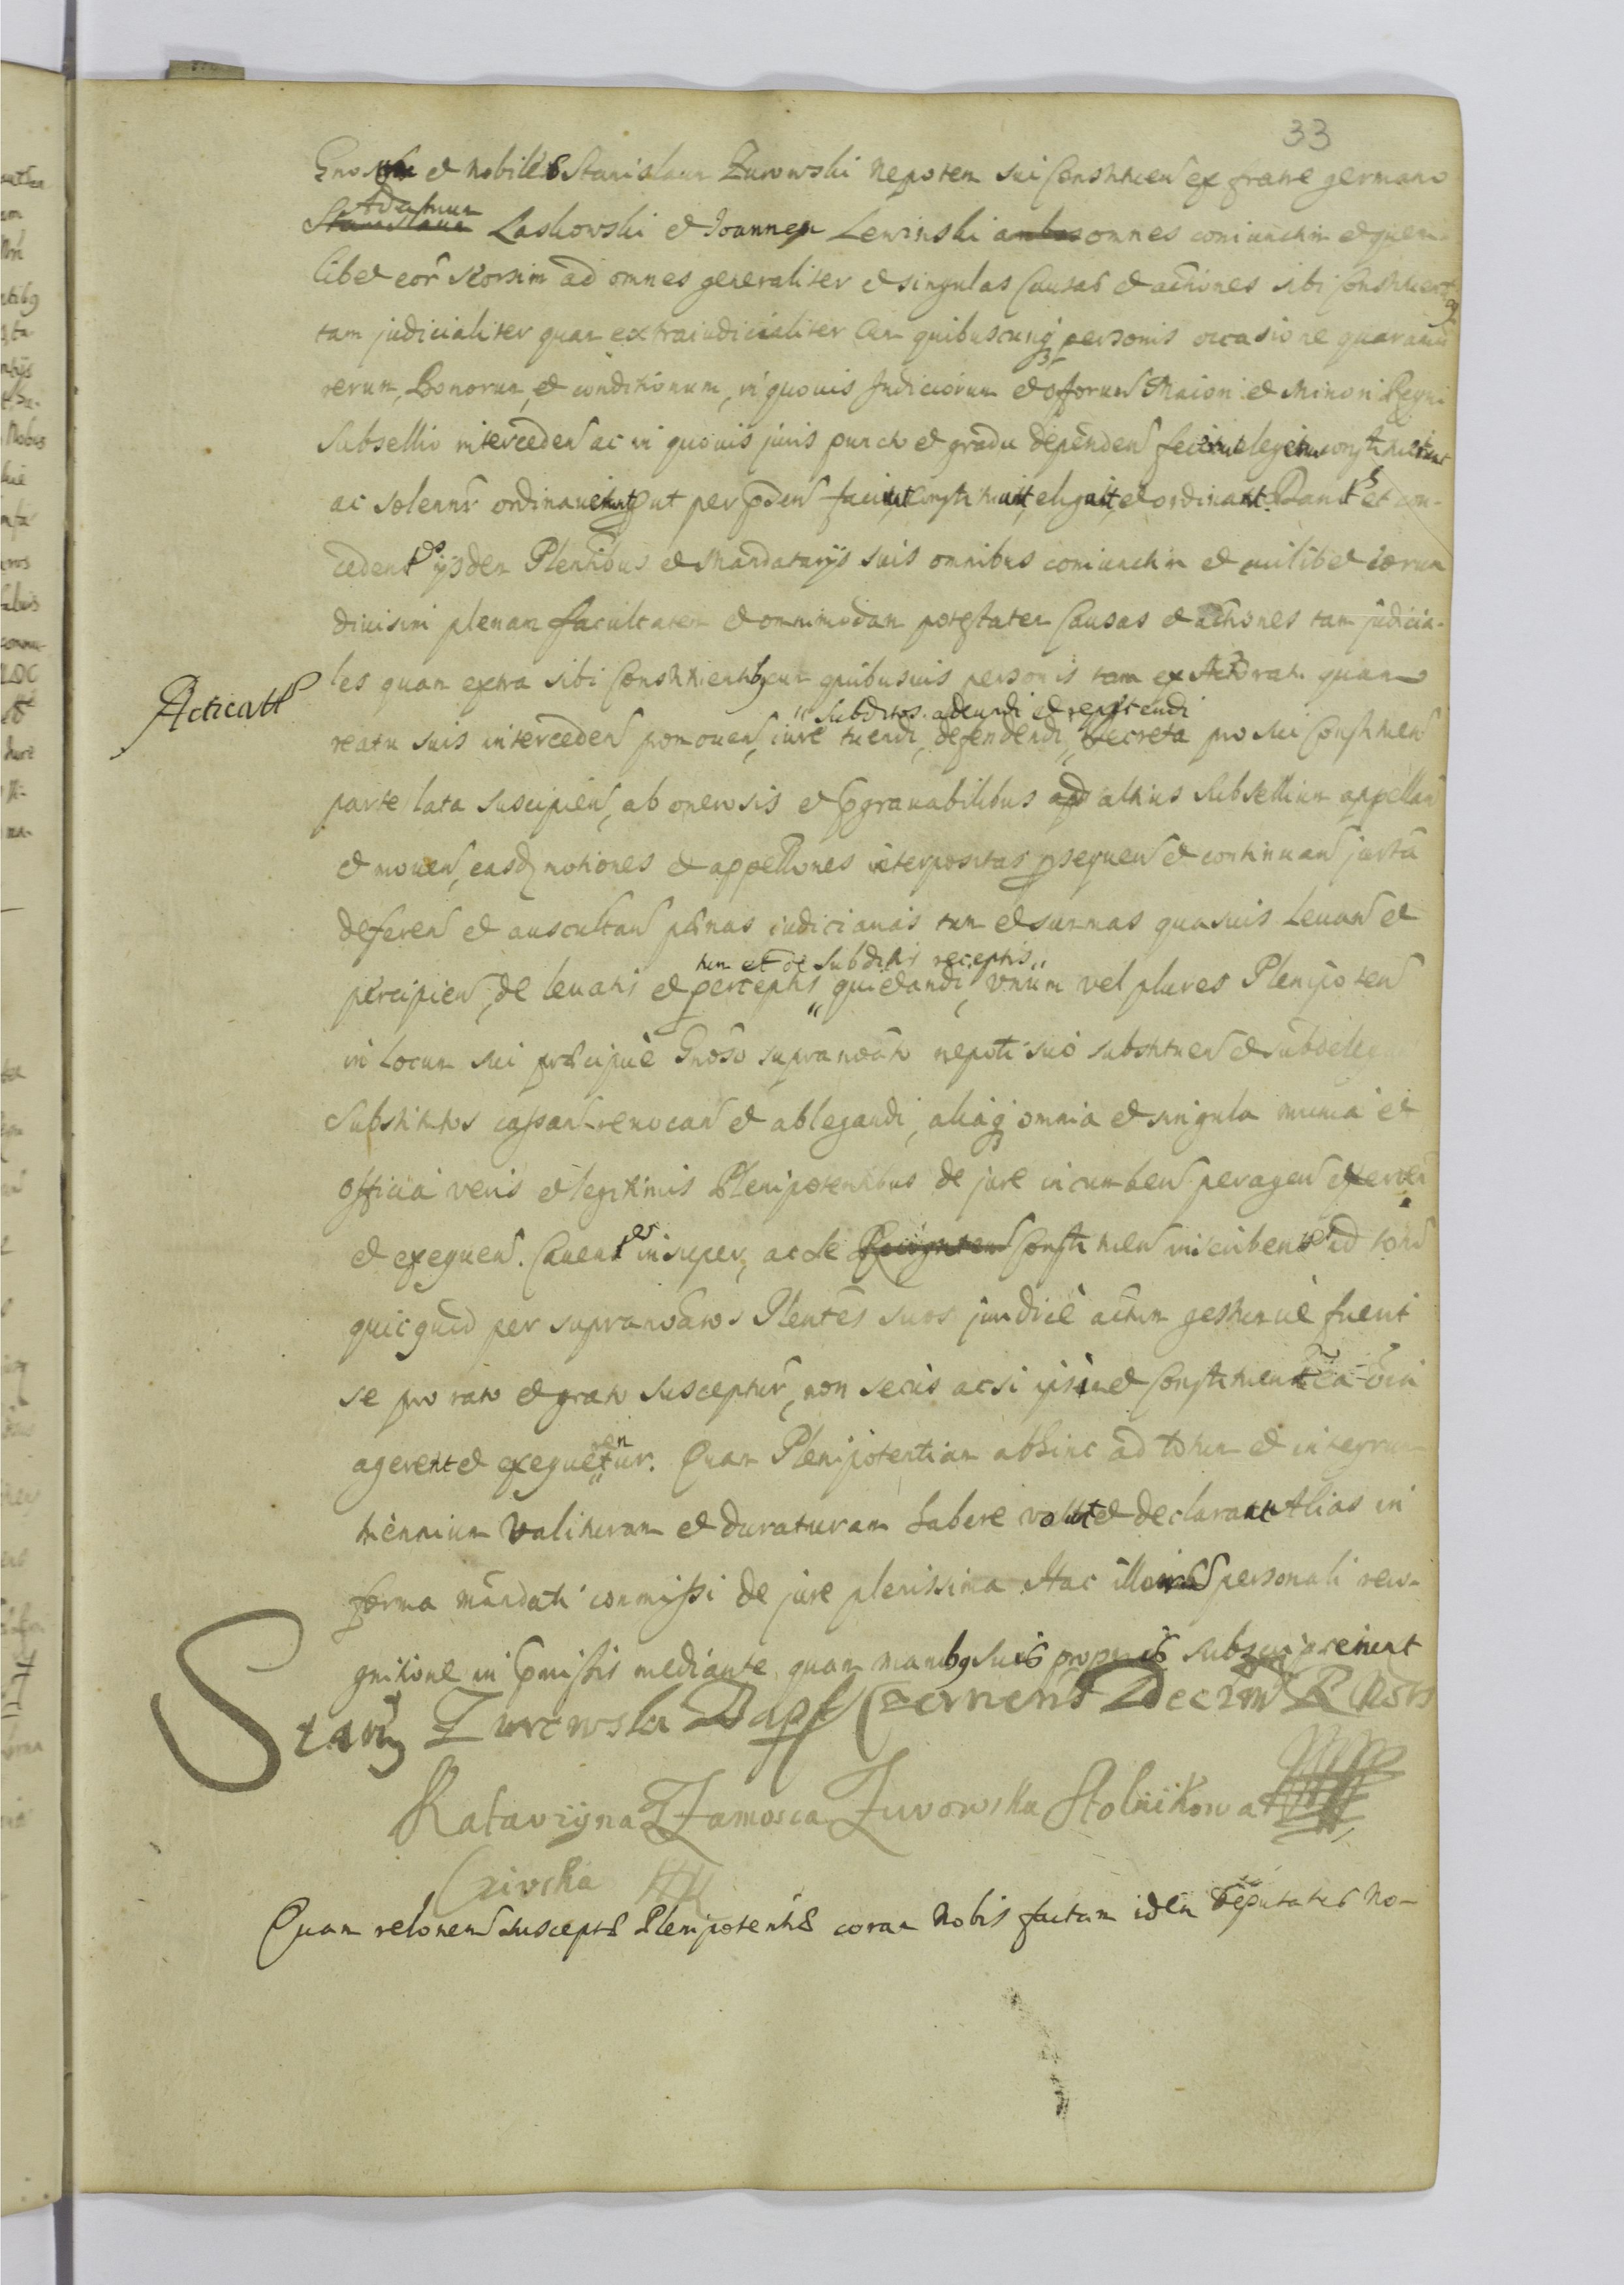 33
et Nobiles Stanislaum Zurowski Nepotem sui Constituen ex fratre germano
Adamum
Stanislaum Laskowski et Joannem Lewinski ambos omnes coniunctim et quem-
libet eor seorsim ad omnes generaliter et singulas Causas et actiones sibi Constituentibq
tam judicialiter quam extraiudicialiter cum quibuscunq personis occasione quarumuis
rerum, Bonorum, et conditionum, in quouis Judiciorum et Officiorum Maiori et Minori Regni
Subsellio interceden ac in quouis juris puncto et gradu dependen fecerunt elegerunt constituerunt
ac solennr ordinauerunt put per pnden faciunt constituunt, eligunt, et ordinant. Dantes et con-
cedentes ijsdem Plentibus et Mandatarijs suis omnibus coniunctim et cuilibet eorum
diuisim plenam facultatem et omnimodam potestatem Causas et actiones tam judicia-
les quam extra sibi Constituentibq cum quibusuis personis tam ex Actoratu quam
Acticatt
subditos adeundi et repetendi
reatu suis interceden promouen, iure tuendi, defendendi, Decreta pro sui Constituen
parte lata suscipien, ab onerosis et pgrauabilibus ad altius Subsellium appellan
et mouen, easdq motiones et appellones interpositas psequen et continuan jurta
deferen et auscultan pnas iudiciarias tum et summas quasuis leuan et
tum et de subditis receptis
percipien, de leuatis et perceptis quietandi, vnum vel plures Plenipoten
in locum sui præcipuè Gnoso supranoato nepoti suo substituen et subdeleg
Substitutos cassan reuocan et ablegandi, aliaq omnia et singula munia et
officia veris et legitimis Plenipotentibus de jure incumben peragen exercen
et exequen. Cauentes insuper, ac se Constituen inscribentes id totu
quicquid per supranoatos Plentes suos juridicè actum gestumuè fuerit
se pro rato et grato suscepturos, non secus acsi ipsimet Constituentes ea oia
ren
agerent et exequetur. Quam Plenipotentiam abhinc ad totum et integrum
triennium valituram et duraturam habere volunt et declarant Alias in
forma mandati commissi de jure plenissima Hac illorum personali reco-
gnitione in pmissis mediante quam manibq suis proprijs subscripserunt
Stanis Zurowski Dapf Czernens Decim R
Katarzyna Z Zamosca Zurowska Stolnikowa
Czirska
Quam relonem suscept Plenipotentiæ coram Nobis factam idem Deputatus No-